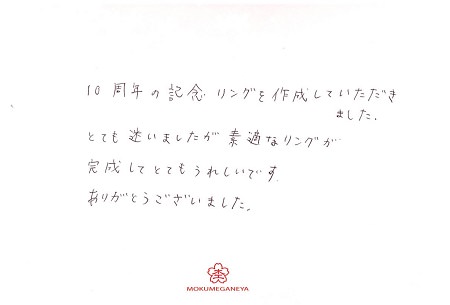 10周年の記念リングを作成していただき
ました.
とても迷いましたが素適なリングが
完成してとてもうれしいです.
ありがとうございました.
MOKUMEGANEYA